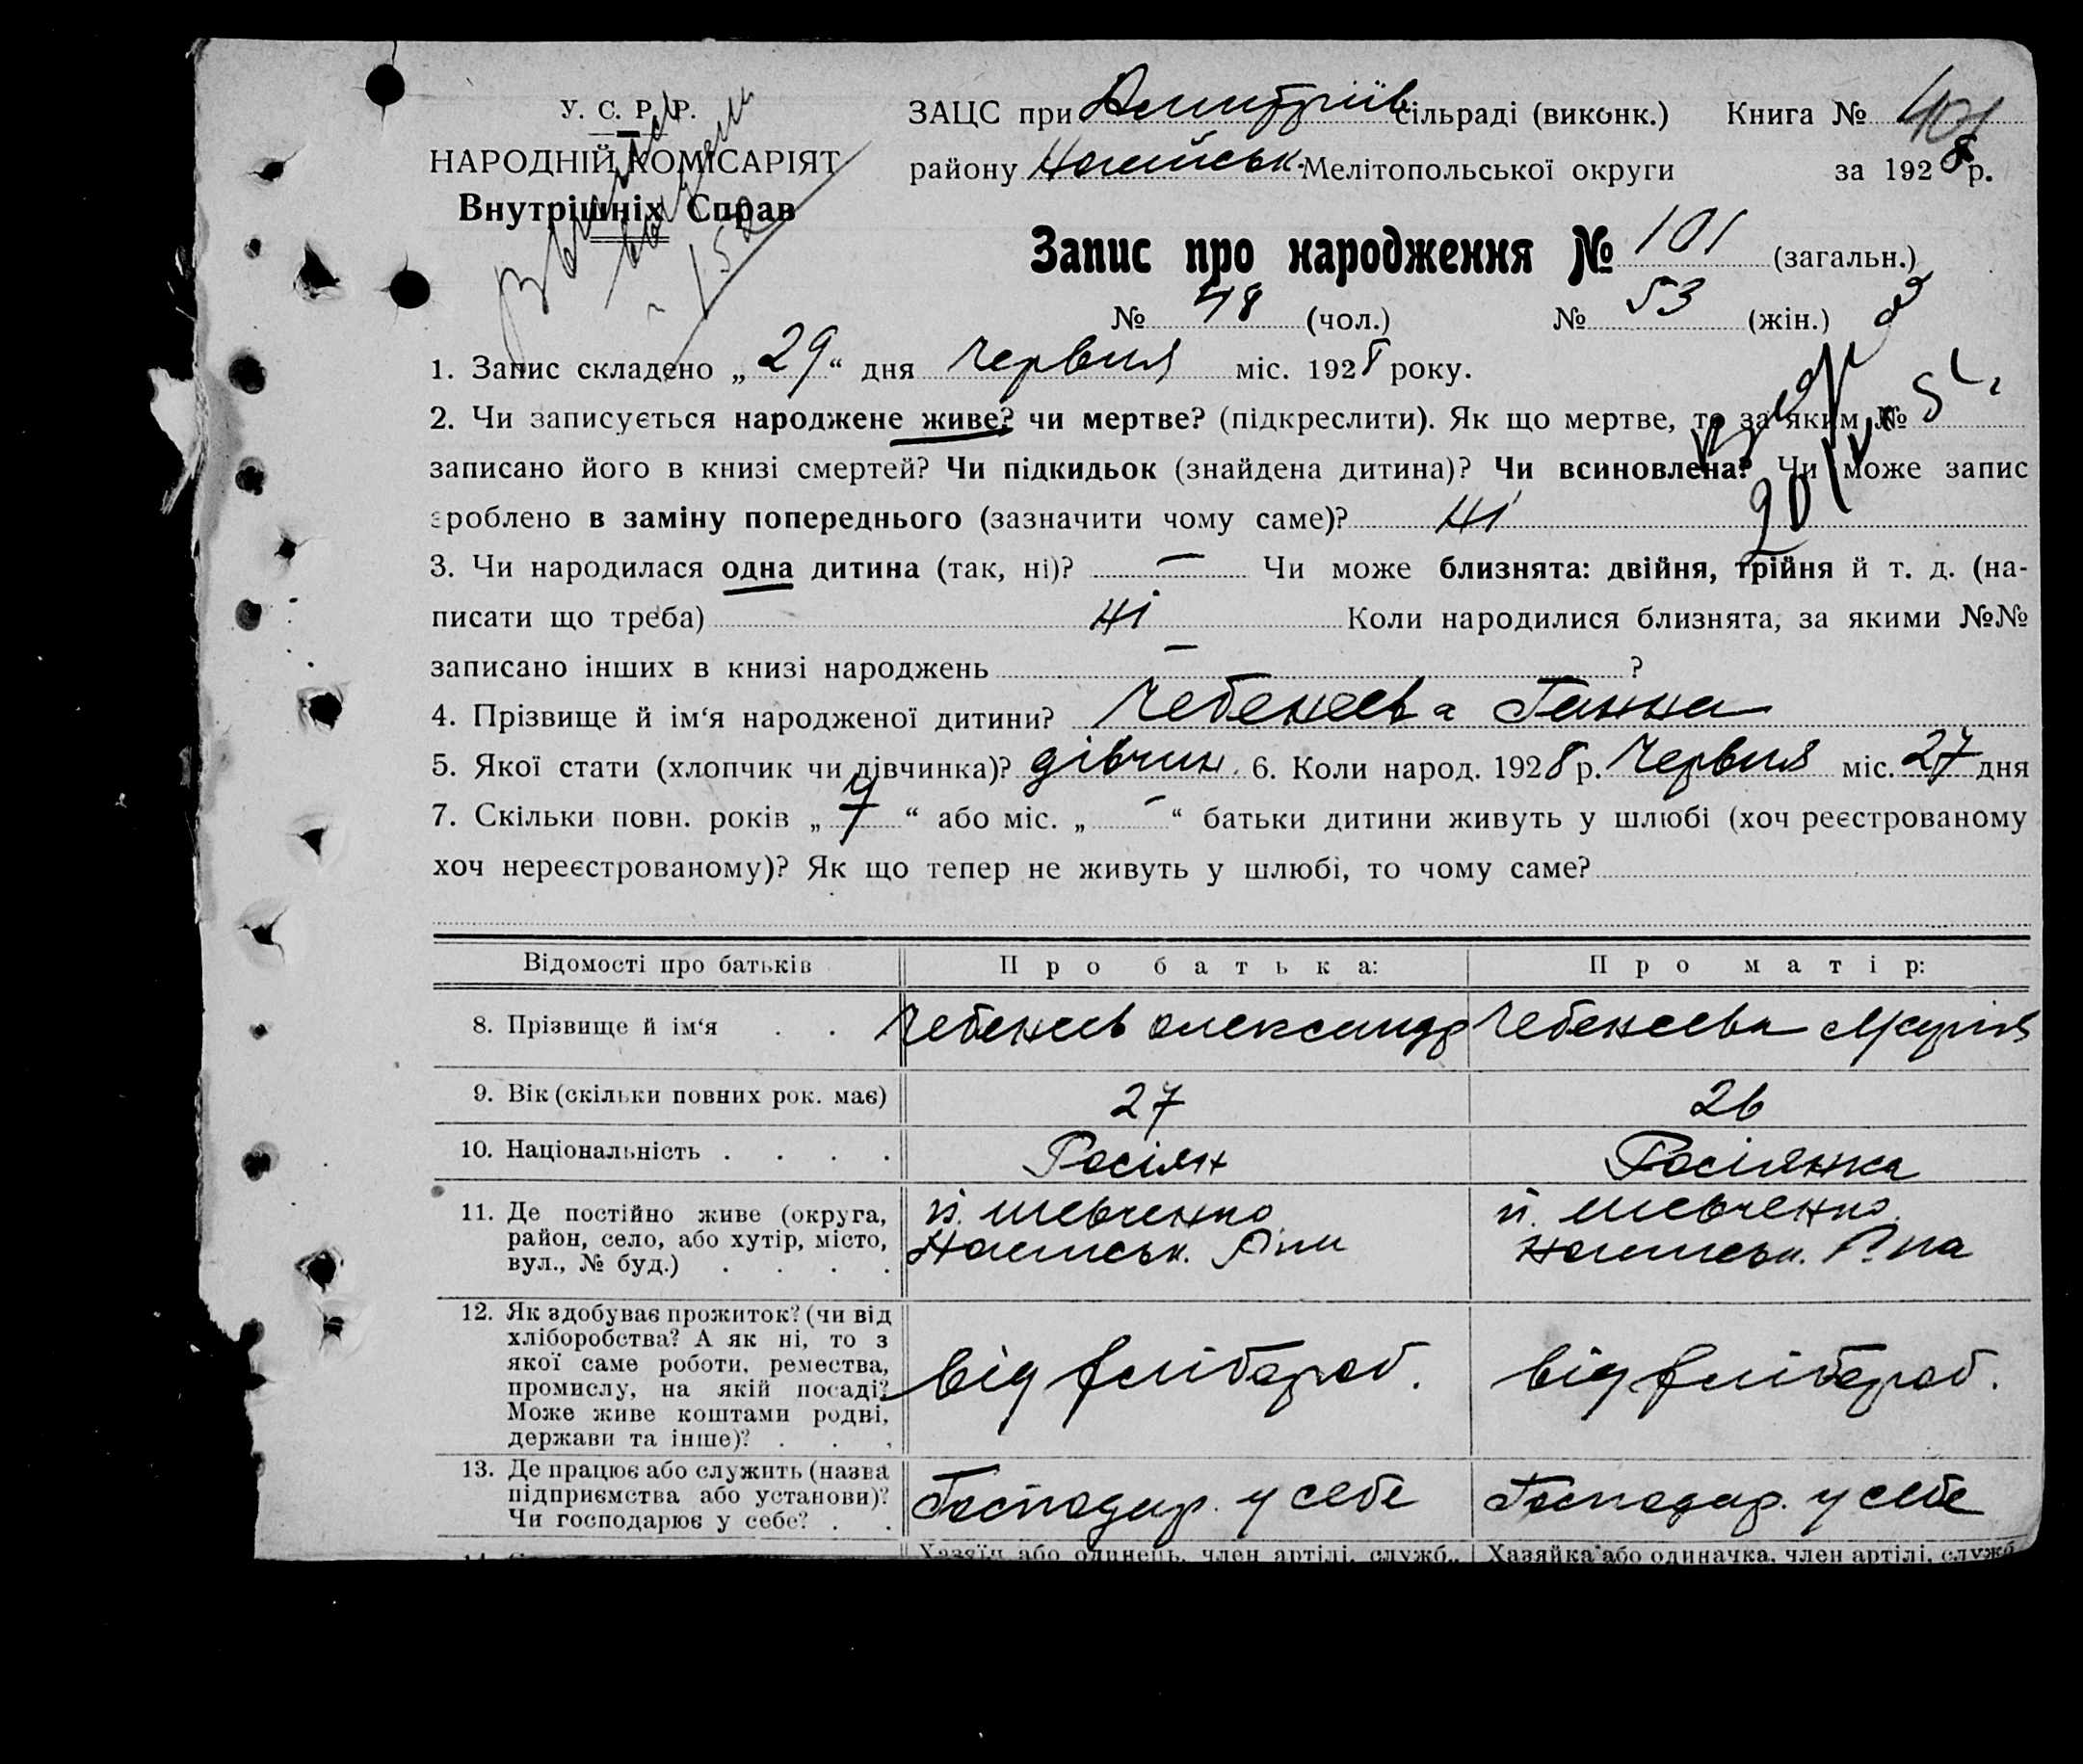 У. С. Р. Р.
НАРОДНІЙ КОМІСАРІЯТ
Внутрішніх Справ
ЗАЦС при Дмитріїв сільраді (виконк.) Книга №
району Ногайськ. Мелітопольської округи за 1928 р.
Запис про народження № 101 (загальн.)
№ 48 (чол.) № 53 (жін.)
1. Запис складено „ 29 “ дня червня міс. 1928 року.
2. Чи записується народжене живе? чи мертве? (підкреслити). Як що мертве, то за яким №
записано його в книзі смертей? Чи підкидьок (знайдена дитина)? Чи всиновлена? Чи може запис
зроблено в заміну попереднього (зазначити чому саме)? ні
3. Чи народилася одна дитина (так, ні)? — Чи може близнята: двійня, трійня й т. д. (на-
писати що треба) ні Коли народилися близнята, за якими №№
записано інших в книзі народжень — ?
4. Прізвище й ім‘я народженої дитини? Чебенеева Ганна
5. Якої стати (хлопчик чи дівчинка)? дівчин. 6. Коли народ. 1928 р. Червня міс. 27 дня
7. Скільки повн. років „ “ або міс. „ - “ батьки дитини живуть у шлюбі (хоч реєстрованому
хоч нереєстрованому)? Як що тепер не живуть у шлюбі, то чому саме?
Відомості про батьків Про батька: Про матір:
8. Прізвище й ім‘я . . Чебенеев Олександр Чебенеева Марія
9. Вік (скільки повних рок. має) 27 26
10. Національність . . . . Росіян Росіянка
11. Де постійно живе (округа,
район, село, або хутір, місто,
вул., № буд.) . . . .
п. Шевченко
Ногайськ. Р-ну
п. Шевченко
Ногайськ. Р-на
12. Як здобуває прожиток? (чи від
хліборобства? А як ні, то з
якої саме роботи, ремества,
промислу, на якій посаді?
Може живе коштами родні,
держави та інше)? . . .
від хлібороб.
від хлібороб.
13. Де працює або служить (назва
підприємства або установи)?
Чи господарює у себе? . .
Господар. у себе
Господар. у себе
Хазяїн або одинець, член артілі, служб., Хазяйка або одиначка, член артілі, служб.